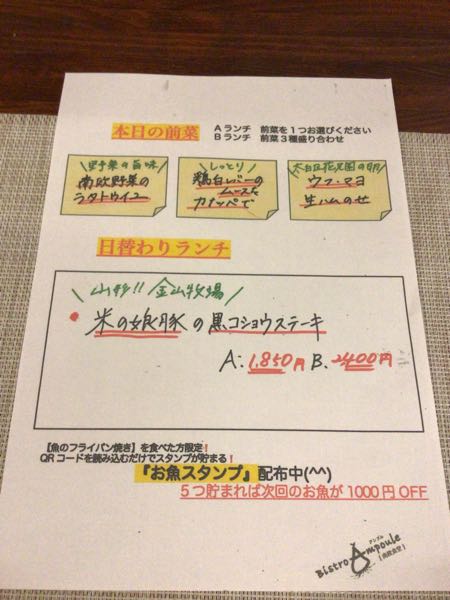 本日の前菜
Aランチ 前菜を1つお選びください
Bランチ 前菜3種盛り合わせ
\野菜の旨味/
南欧野菜の
ラタトゥイユ
\しっとり/
鶏白レバーの
ムースを
カナッペで
ウフ・マヨ
生ハムのせ
日替わりランチ
\山形!! 金山牧場/
米の娘豚の黒コショウステーキ
A:1,850円 B.2400円
【魚のフライパン焼き】を食べた方限定!
QRコードを読み込むだけでスタンプが貯まる!
『お魚スタンプ』配布中(^^)
5つ貯まれば次回のお魚が1000円OFF
アンプル
Bistro Ampoule